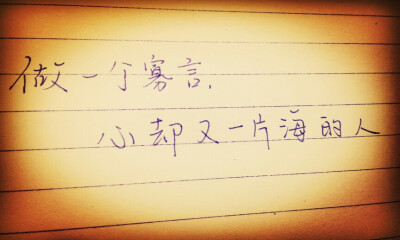 做一个寡言,
心却又一片海的人